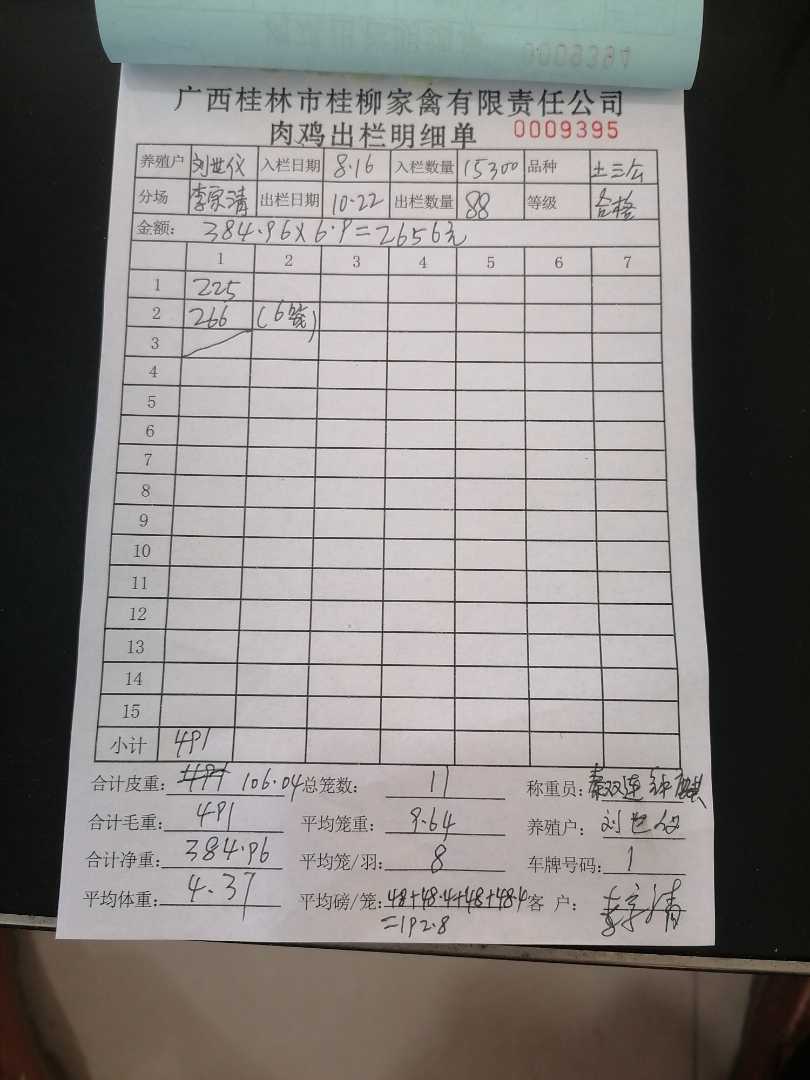 0009394
广西桂林市桂柳家禽有限责任公司
肉鸡出栏明细单 0009395
养殖户 刘世仪 入栏日期 8·16 入栏数量 15300 品种 土三公
分场 李宗清 出栏日期 10·22 出栏数量 88 等级 合格
金额: 384.96×6.9=2656元
1 2 3 4 5 6 7
1 225
2 266 (6笼)
3
4
5
6
7
8
9
10
11
12
13
14
15
小计 491
合计皮重: 491 106.04 总笼数: 11 称重员: 秦双连
合计毛重: 491 平均笼重: 9.64 养殖户: 刘世仪
合计净重: 384.96 平均笼/羽: 8 车牌号码: 1
平均体重: 4.37 平均磅/笼: 48+48.4+48+48.4 客 户: 李宗清
=192.8